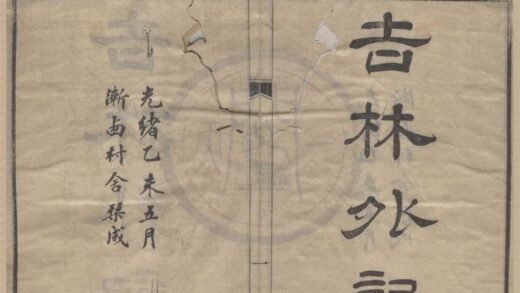 吉林外記
一
光緒乙未五月
漸卥村舍成